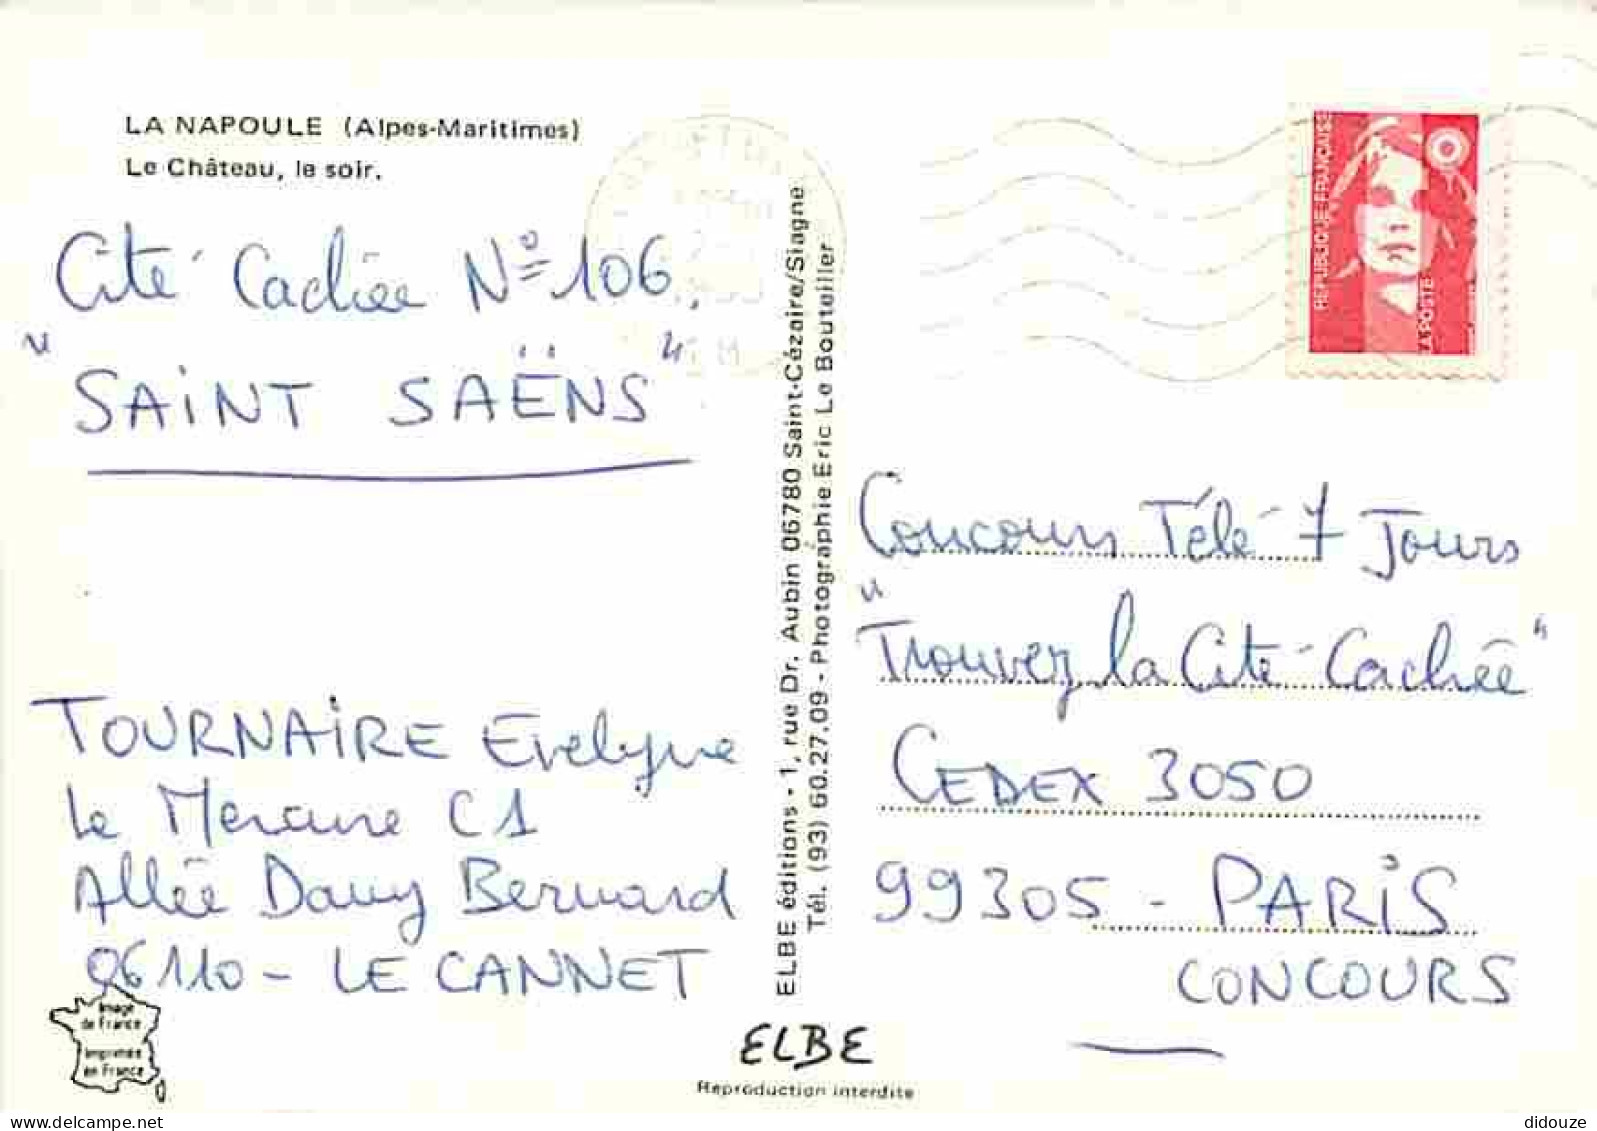 LA NAPOULE (Alpes-Maritimes)
Le Château, le soir.
Cité Cachée N° 106.
"SAINT SAËNS"
TOURNAIRE Evelyne
Le Mercure C1
Allée Dany Bernard
06110 - LE CANNET
Image
de France
Imprimée
en France
ELBE éditions - 1, rue Dr. Aubin 06780 Saint-Cézaire/Siagne
Tél. (93) 60.27.09 - Photographie Eric Le Bouteiller
ELBE
Reproduction interdite
REPUBLIQUE FRANÇAISE
LA POSTE
Concours Télé 7 Jours
"Trouvez la Cité Cachée"
CEDEX 3050
99305 - PARIS
CONCOURS
didouze